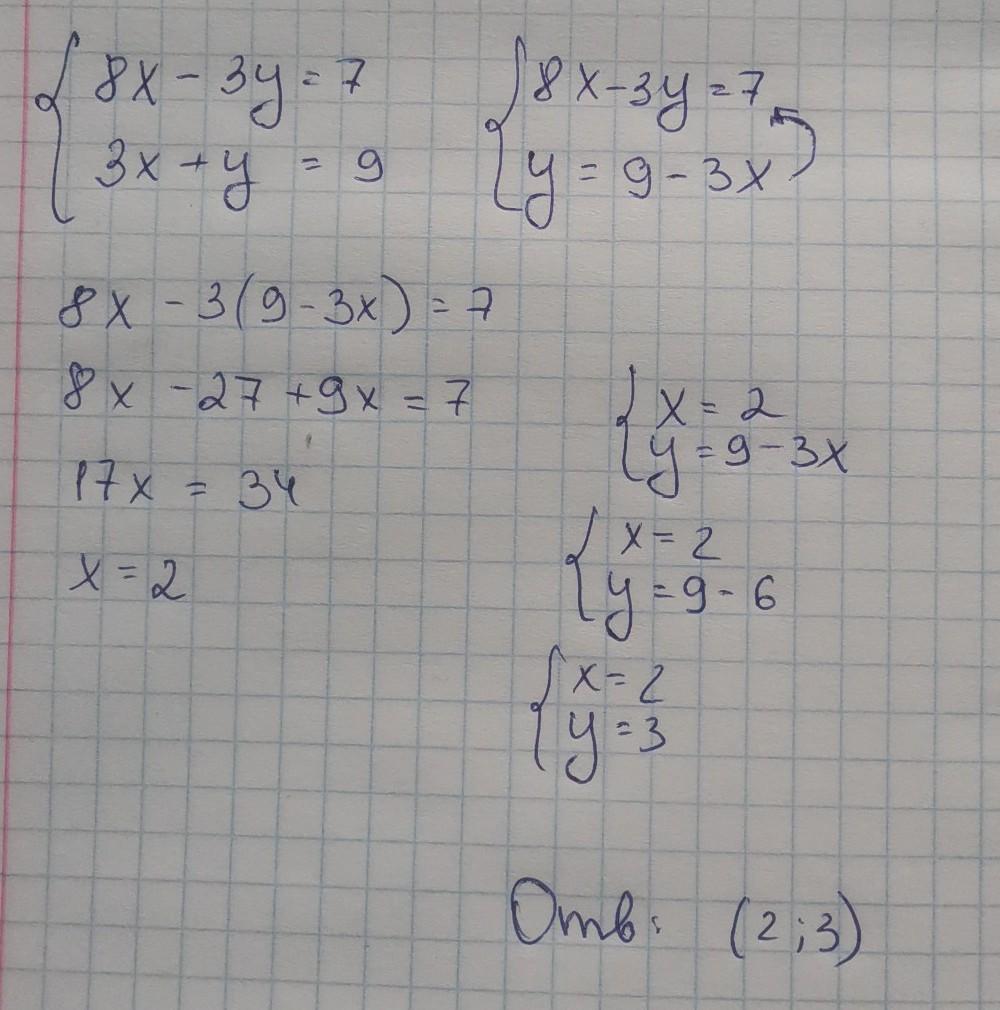 8x - 3y = 7
3x + y = 9
8x - 3y = 7
y = 9 - 3x
8x - 3(9 - 3x) = 7
8x - 27 + 9x = 7
17x = 34
x = 2
x = 2
y = 9 - 3x
x = 2
y = 9 - 6
x = 2
y = 3
Отв: (2;3)